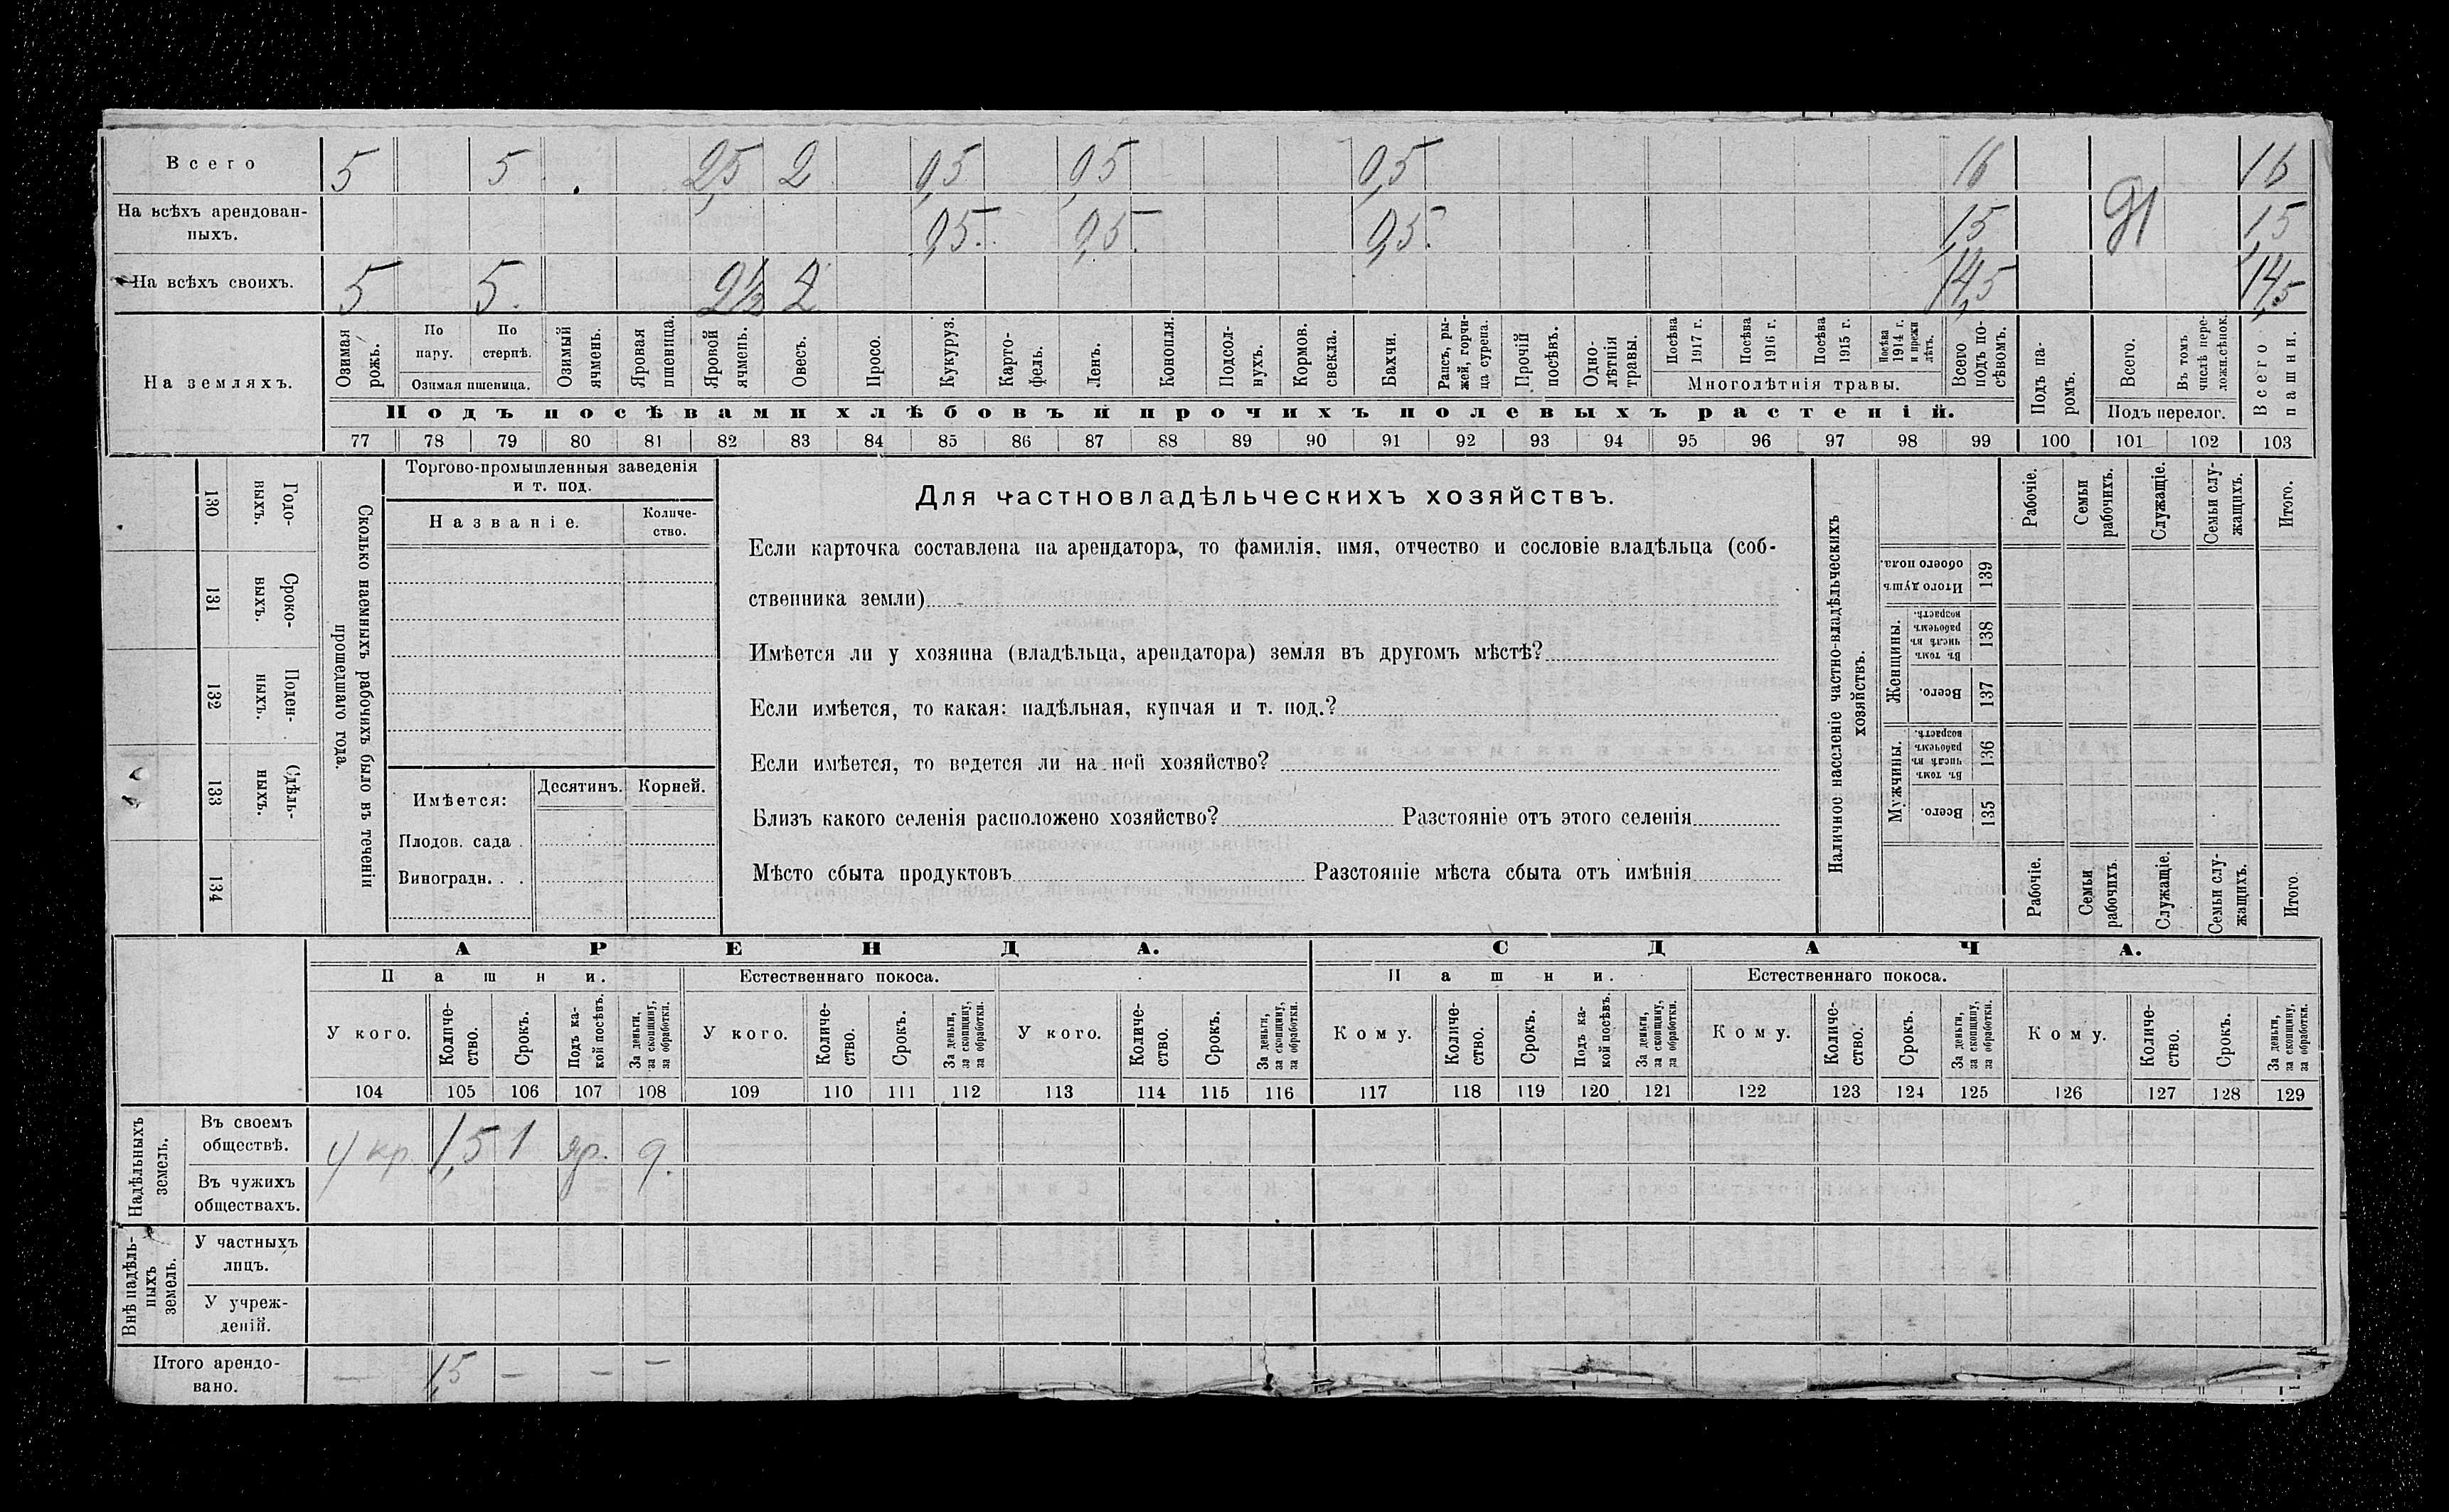 Всего 5 5 . 2,5 2 0,5 0,5 0,5 16 16
На всѣхъ арендован-
ныхъ. 0,5. 0,5. 0,5. 1,5 1,5
На всѣхъ своихъ. 5 5. 2½ 2 14,5 14,5
На земляхъ.
Озимая рожь.
По пару.
По стернѣ.
Озимая пшеница.
Озимый ячмень.
Яровая пшеница.
Яровой ячмень.
Овесъ.
Просо.
Кукуруз.
Карто-
фель.
Ленъ.
Конопля.
Подсол-
нухъ.
Кормов.
свекла.
Бахчи.
Рапсъ, ры-
жей, горчи-
ца сурепа.
Прочій
посѣвъ.
Одно-
лѣтнія
травы.
Посѣва
1917 г.
Посѣва
1916 г.
Посѣва
1915 г.
Посѣва
1914 г.
и прежн
лѣтъ.
Многолѣтнія травы.
Всего
подъ по-
сѣвомъ.
Подъ па-
ромъ.
Всего.
Въ томъ
числѣ пере-
ложн.сѣнок.
Подъ перелог.
Всего
пашни.
Подъ посѣвами хлѣбовъ и прочихъ полевыхъ растеній.
77 78 79 80 81 82 83 84 85 86 87 88 89 90 91 92 93 94 95 96 97 98 99 100 101 102 103
130 Годо-
выхъ.
131 Сроко-
выхъ.
132 Поден-
ныхъ.
133 Сдѣль-
ныхъ.
134
Сколько наемныхъ рабочихъ было въ теченіи
прошедшаго года.
Торгово-промышленныя заведенія
и т. под.
Названіе.
Количе-
ство.
Имѣется:
Десятинъ. Корней.
Плодов. сада .
Виноградн. . .
Для частновладѣльческихъ хозяйствъ.
Если карточка составлена на арендатора, то фамилія, имя, отчество и сословіе владѣльца (соб-
ственника земли)
Имѣется ли у хозяина (владѣльца, арендатора) земля въ другомъ мѣстѣ?
Если имѣется, то какая: надѣльная, купчая и т. под.?
Если имѣется, то ведется ли на ней хозяйство?
Близъ какого селенія расположено хозяйство? Разстояніе отъ этого селенія
Мѣсто сбыта продуктовъ Разстояніе мѣста сбыта отъ имѣнія
Наличное населеніе частно-владѣльческихъ
хозяйствъ.
Рабочіе.
Семьи
рабочихъ.
Служащіе.
Семьи слу-
жащихъ.
Итого.
Итого душъ
обоего пола.
139
Женщины.
Въ томъ
числѣ въ
рабочемъ
возрастѣ.
138
Всего.
137
Мужчины.
Въ томъ
числѣ въ
рабочемъ
возрастѣ.
136
Всего.
135
Рабочіе.
Семьи
рабочихъ
Служащіе.
Семьи слу-
жащихъ.
Итого.
АРЕНДА. СДАЧА.
Пашни. Естественнаго покоса. Пашни. Естественнаго покоса.
У кого.
Количе-
ство.
Срокъ.
Подъ ка-
кой посѣвъ.
За деньги,
за скопщину,
за обработки.
У кого.
Количе-
ство.
Срокъ.
За деньги,
за скопщину,
за обработки.
У кого.
Количе-
ство.
Срокъ.
За деньги,
за скопщину,
за обработки.
Кому.
Количе-
ство.
Срокъ.
Подъ ка-
кой посѣвъ.
За деньги,
за скопщину,
за обработки.
Кому.
Количе-
ство.
Срокъ.
За деньги,
за скопщину,
за обработки.
Кому.
Количе-
ство.
Срокъ.
За деньги,
за скопщину,
за обработки.
104 105 106 107 108 109 110 111 112 113 114 115 116 117 118 119 120 121 122 123 124 125 126 127 128 129
Надѣльныхъ
земель.
Въ своемъ
обществѣ. у кр. 1,5 1 яр.
Въ чужихъ
обществахъ.
Внѣ надѣль-
ныхъ
земель.
У частныхъ
лицъ.
У учреж-
деній.
Итого арендо-
вано. — 1,5 — — —